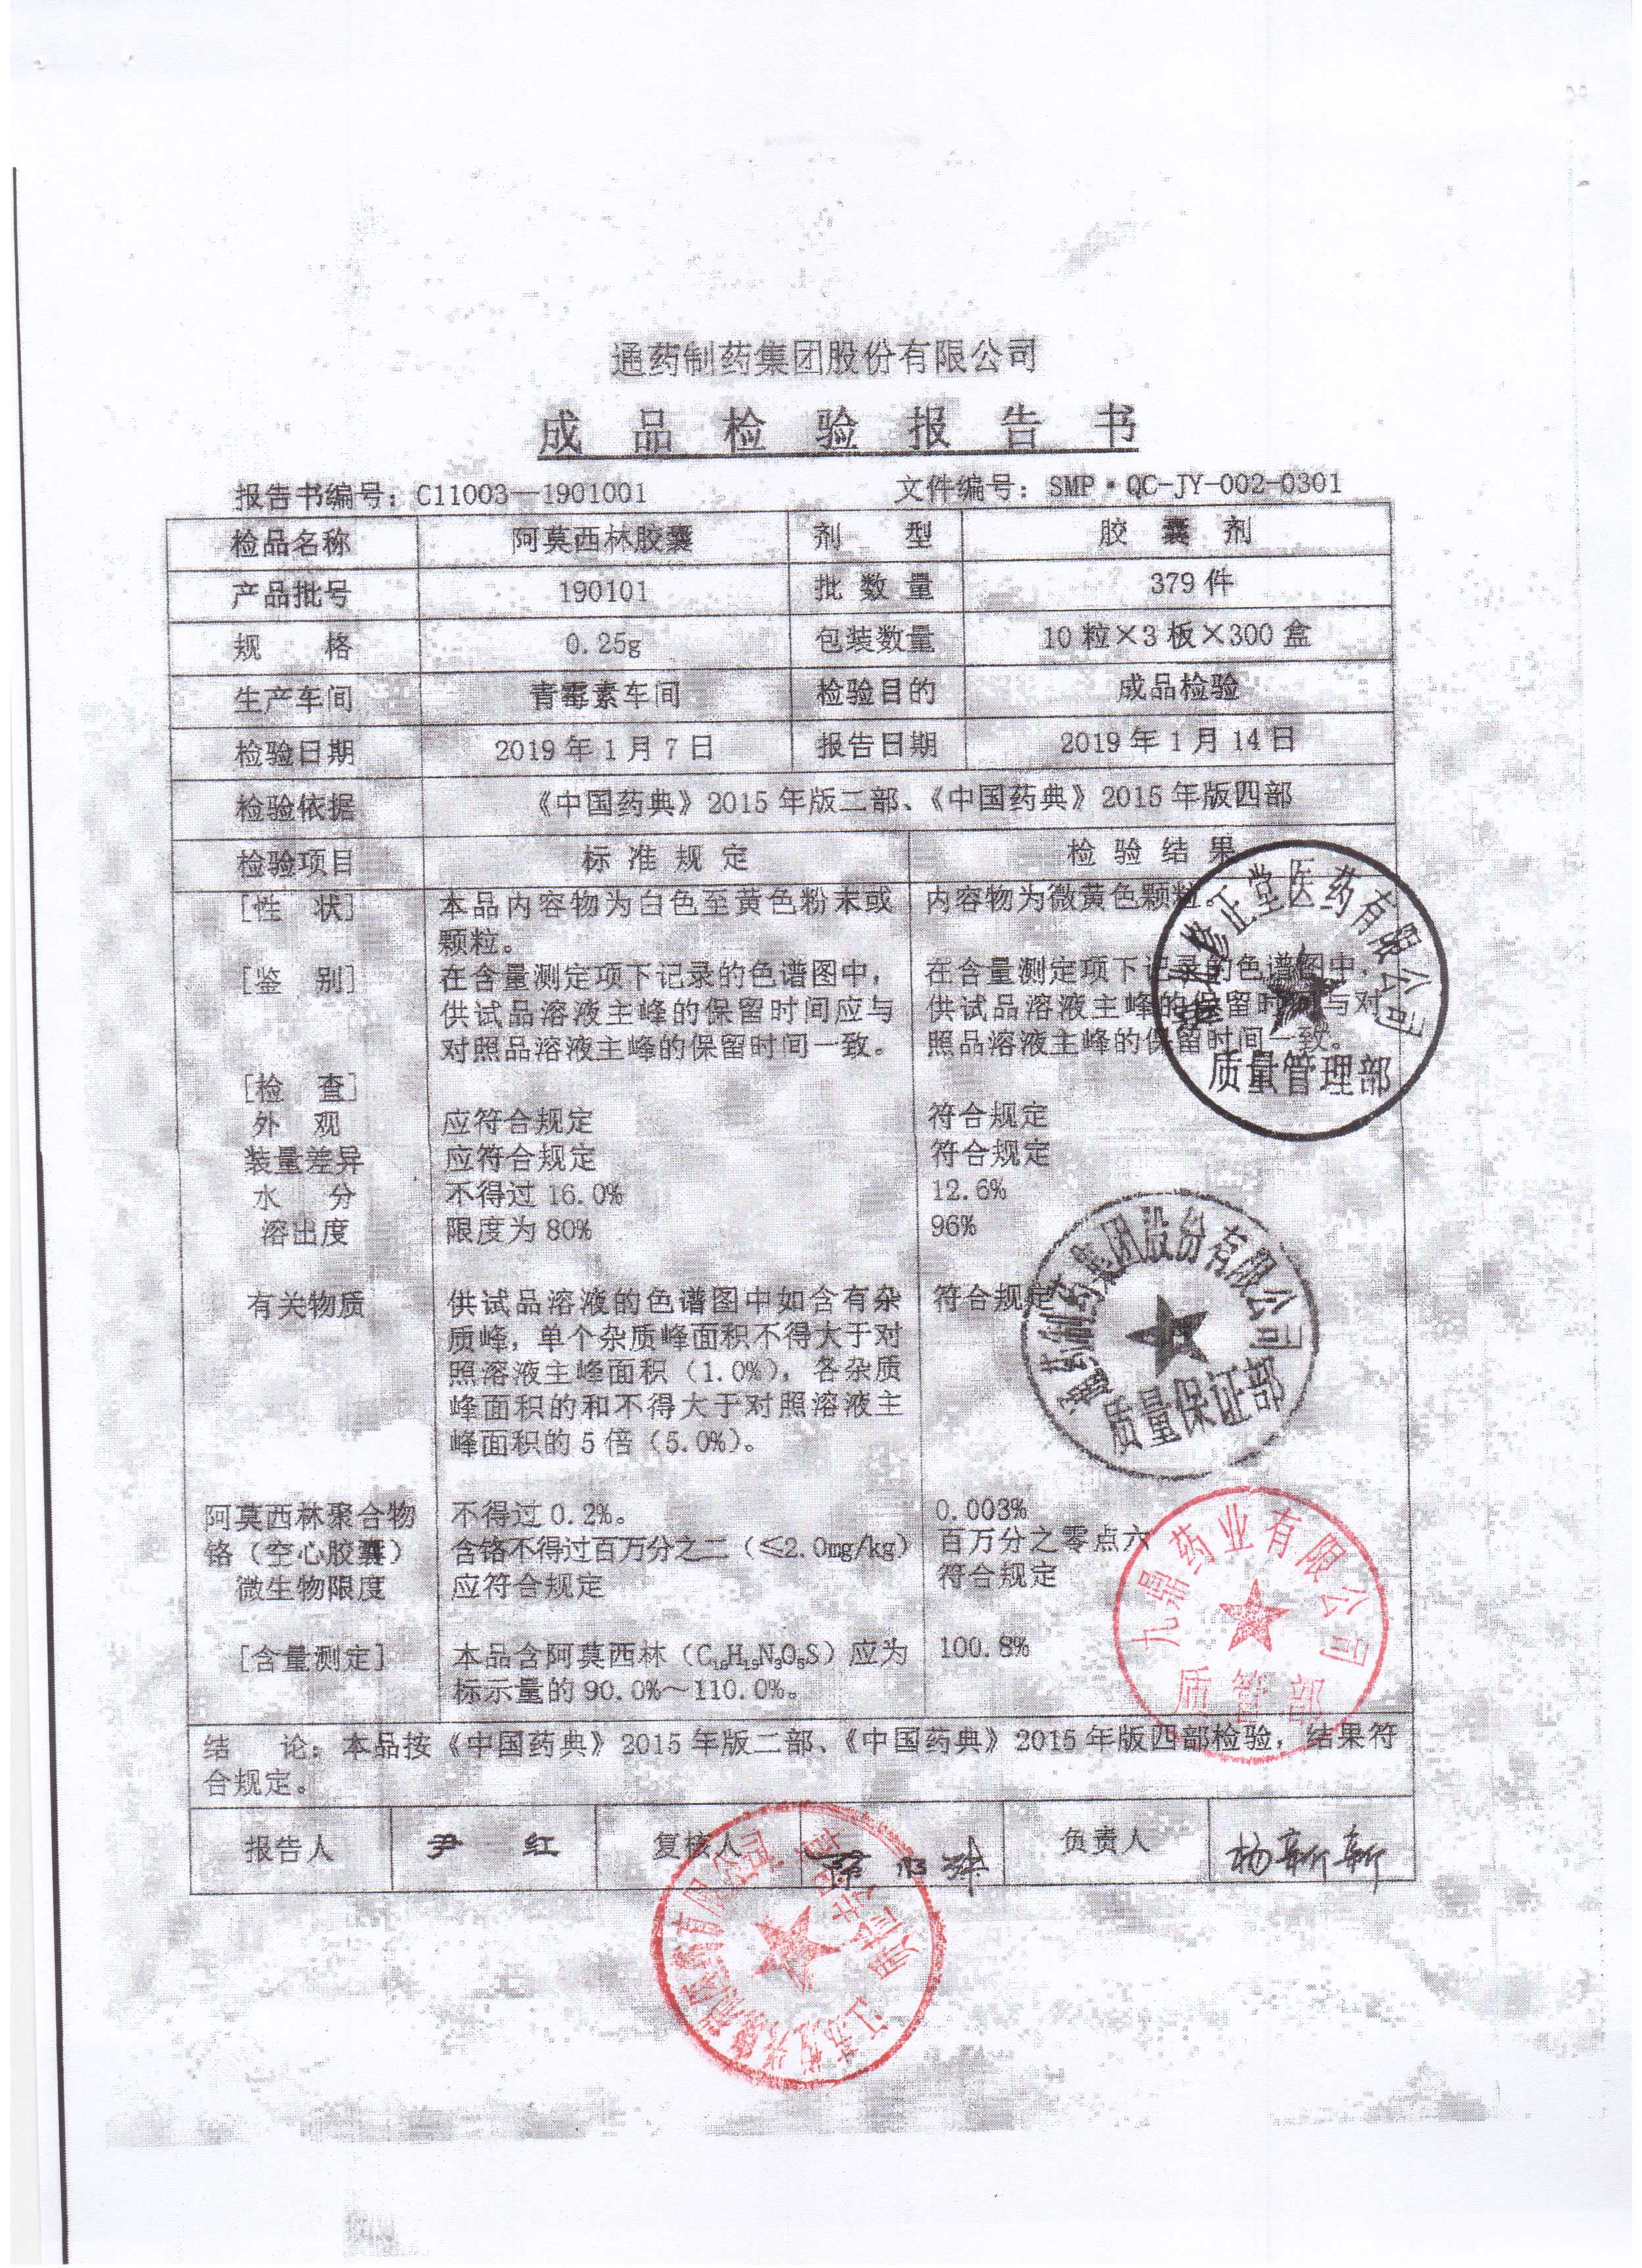 通药制药集团股份有限公司
成品检验报告书
报告书编号：C11003—1901001 文件编号：SMP·QC-JY-002-0301
检品名称 阿莫西林胶囊 剂 型 胶 囊 剂
产品批号 190101 批 数 量 379 件
规 格 0.25g 包装数量 10 粒×3 板×300 盒
生产车间 青霉素车间 检验目的 成品检验
检验日期 2019 年 1 月 7 日 报告日期 2019 年 1 月 14 日
检验依据 《中国药典》2015 年版二部、《中国药典》2015 年版四部
检验项目 标 准 规 定 检 验 结 果
[性 状] 本品内容物为白色至黄色粉末或 内容物为微黄色颗粒。
颗粒。
[鉴 别] 在含量测定项下记录的色谱图中， 在含量测定项下记录的色谱图中，
供试品溶液主峰的保留时间应与 供试品溶液主峰的保留时间与对
对照品溶液主峰的保留时间一致。 照品溶液主峰的保留时间一致。
[检 查]
外 观 应符合规定 符合规定
装量差异 应符合规定 符合规定
水 分 不得过 16.0% 12.6%
溶出度 限度为 80% 96%
有关物质 供试品溶液的色谱图中如含有杂 符合规定
质峰，单个杂质峰面积不得大于对
照溶液主峰面积（1.0%），各杂质
峰面积的和不得大于对照溶液主
峰面积的 5 倍（5.0%）。
阿莫西林聚合物 不得过 0.2%。 0.003%
铬（空心胶囊） 含铬不得过百万分之二（≤2.0mg/kg） 百万分之零点六
微生物限度 应符合规定 符合规定
[含量测定] 本品含阿莫西林（C₁₆H₁₉N₃O₅S）应为 100.8%
标示量的 90.0%～110.0%。
结 论：本品按《中国药典》2015 年版二部、《中国药典》2015 年版四部检验，结果符
合规定。
报告人 尹 红 复核人 负责人 杨新新
修正堂医药有限公司
质量管理部
通药制药集团股份有限公司
质量保证部
九鼎药业有限公司
质管部